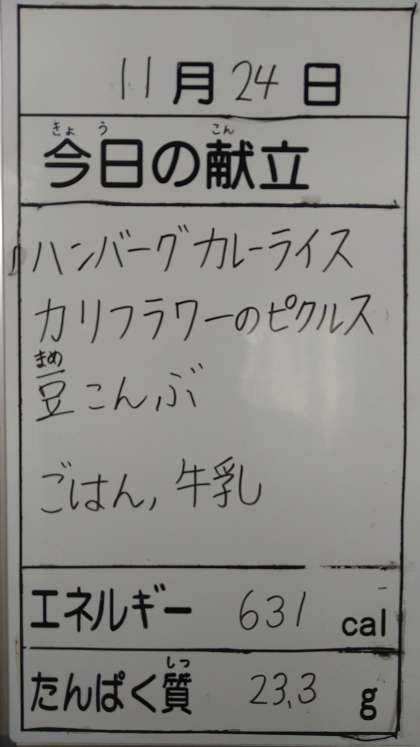 11月24日
きょう こん
今日の献立
ハンバーグカレーライス
カリフラワーのピクルス
まめ
豆こんぶ
ごはん, 牛乳
エネルギー 631 cal
しつ
たんぱく質 23.3 g